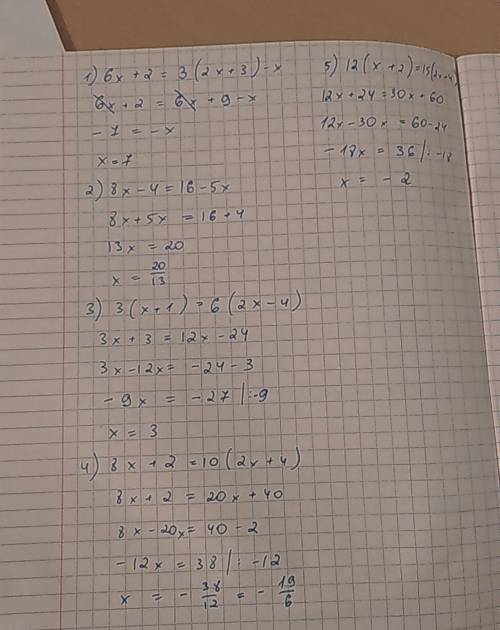 1) 6x + 2 = 3 (2x + 3) - x
6x + 2 = 6x + 9 - x
- 7 = - x
x = 7
2) 8x - 4 = 16 - 5x
8x + 5x = 16 + 4
13x = 20
x = 20/13
3) 3 (x + 1) = 6 (2x - 4)
3x + 3 = 12x - 24
3x - 12x = - 24 - 3
- 9x = - 27 /: -9
x = 3
4) 8x + 2 = 10 (2x + 4)
8x + 2 = 20x + 40
8x - 20x = 40 - 2
- 12x = 38 /: -12
x = - 38/12 = - 19/6
5) 12 (x + 2) = 15 (2x + 4)
12x + 24 = 30x + 60
12x - 30x = 60 - 24
- 18x = 36 /: -18
x = - 2